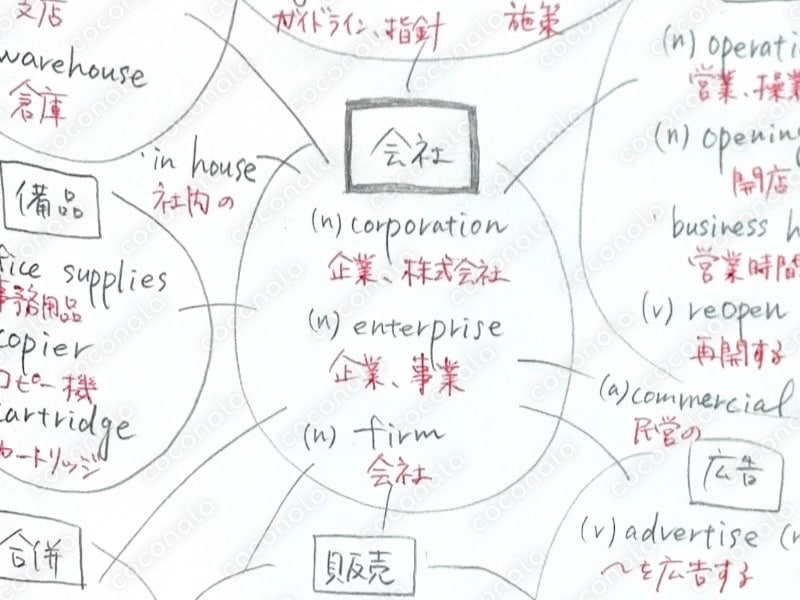 支店
warehouse
倉庫
ガイドライン、指針
施策
in house
社内の
会社
(n) corporation
企業、株式会社
(n) enterprise
企業、事業
(n) firm
会社
備品
fice supplies
事務用品
copier
コピー機
cartridge
カートリッジ
合併
販売
(n) operati
営業、操業
(n) opening
開店
business h
営業時間
(v) reopen
再開する
(a) commercial
民営の
広告
(v) advertise (n
〜を広告する
coconala